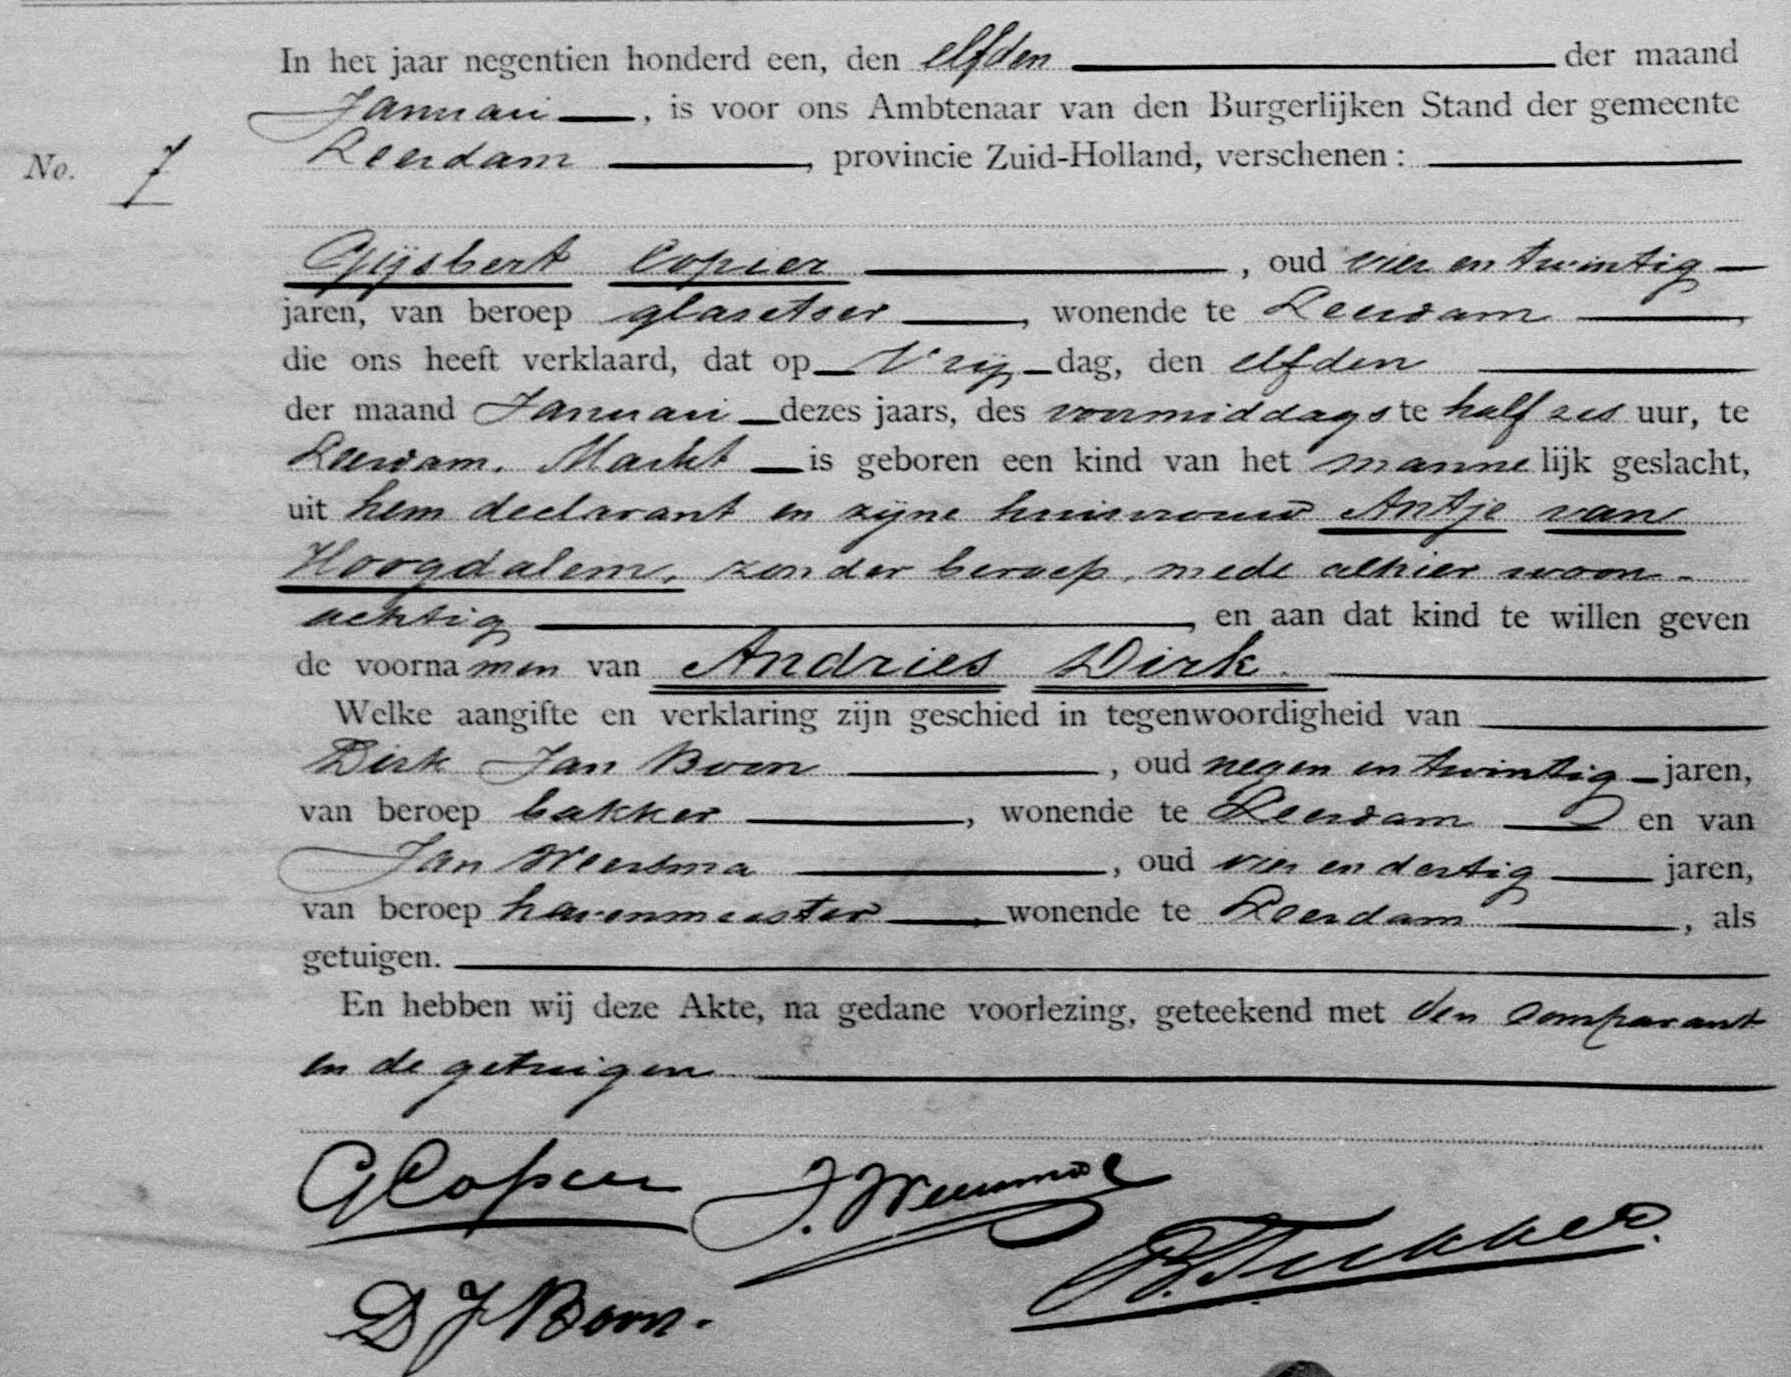 In het jaar negentien honderd een, den elfden der maand
Januari, is voor ons Ambtenaar van den Burgerlijken Stand der gemeente
No. 7 Leerdam, provincie Zuid-Holland, verschenen:
Gijsbert Copier, oud vier en twintig
jaren, van beroep glasetser, wonende te Leerdam
die ons heeft verklaard, dat op Vrijdag, den elfden
der maand Januari dezes jaars, des voormiddags te half zes uur, te
Leerdam, Markt is geboren een kind van het mannelijk geslacht,
uit hem declarant en zijne huisvrouw Antje van
Hoogdalem, zonder beroep, mede alhier woon-
achtig, en aan dat kind te willen geven
de voornamen van Andries Dirk.
Welke aangifte en verklaring zijn geschied in tegenwoordigheid van
Dirk Jan Boon, oud negen en twintig jaren,
van beroep bakker, wonende te Leerdam en van
Jan Weersma, oud vier en dertig jaren,
van beroep havenmeester, wonende te Leerdam, als
getuigen.
En hebben wij deze Akte, na gedane voorlezing, geteekend met den comparant
en de getuigen
GCopier J. Weersma
B. Tukker.
DJ Boon.